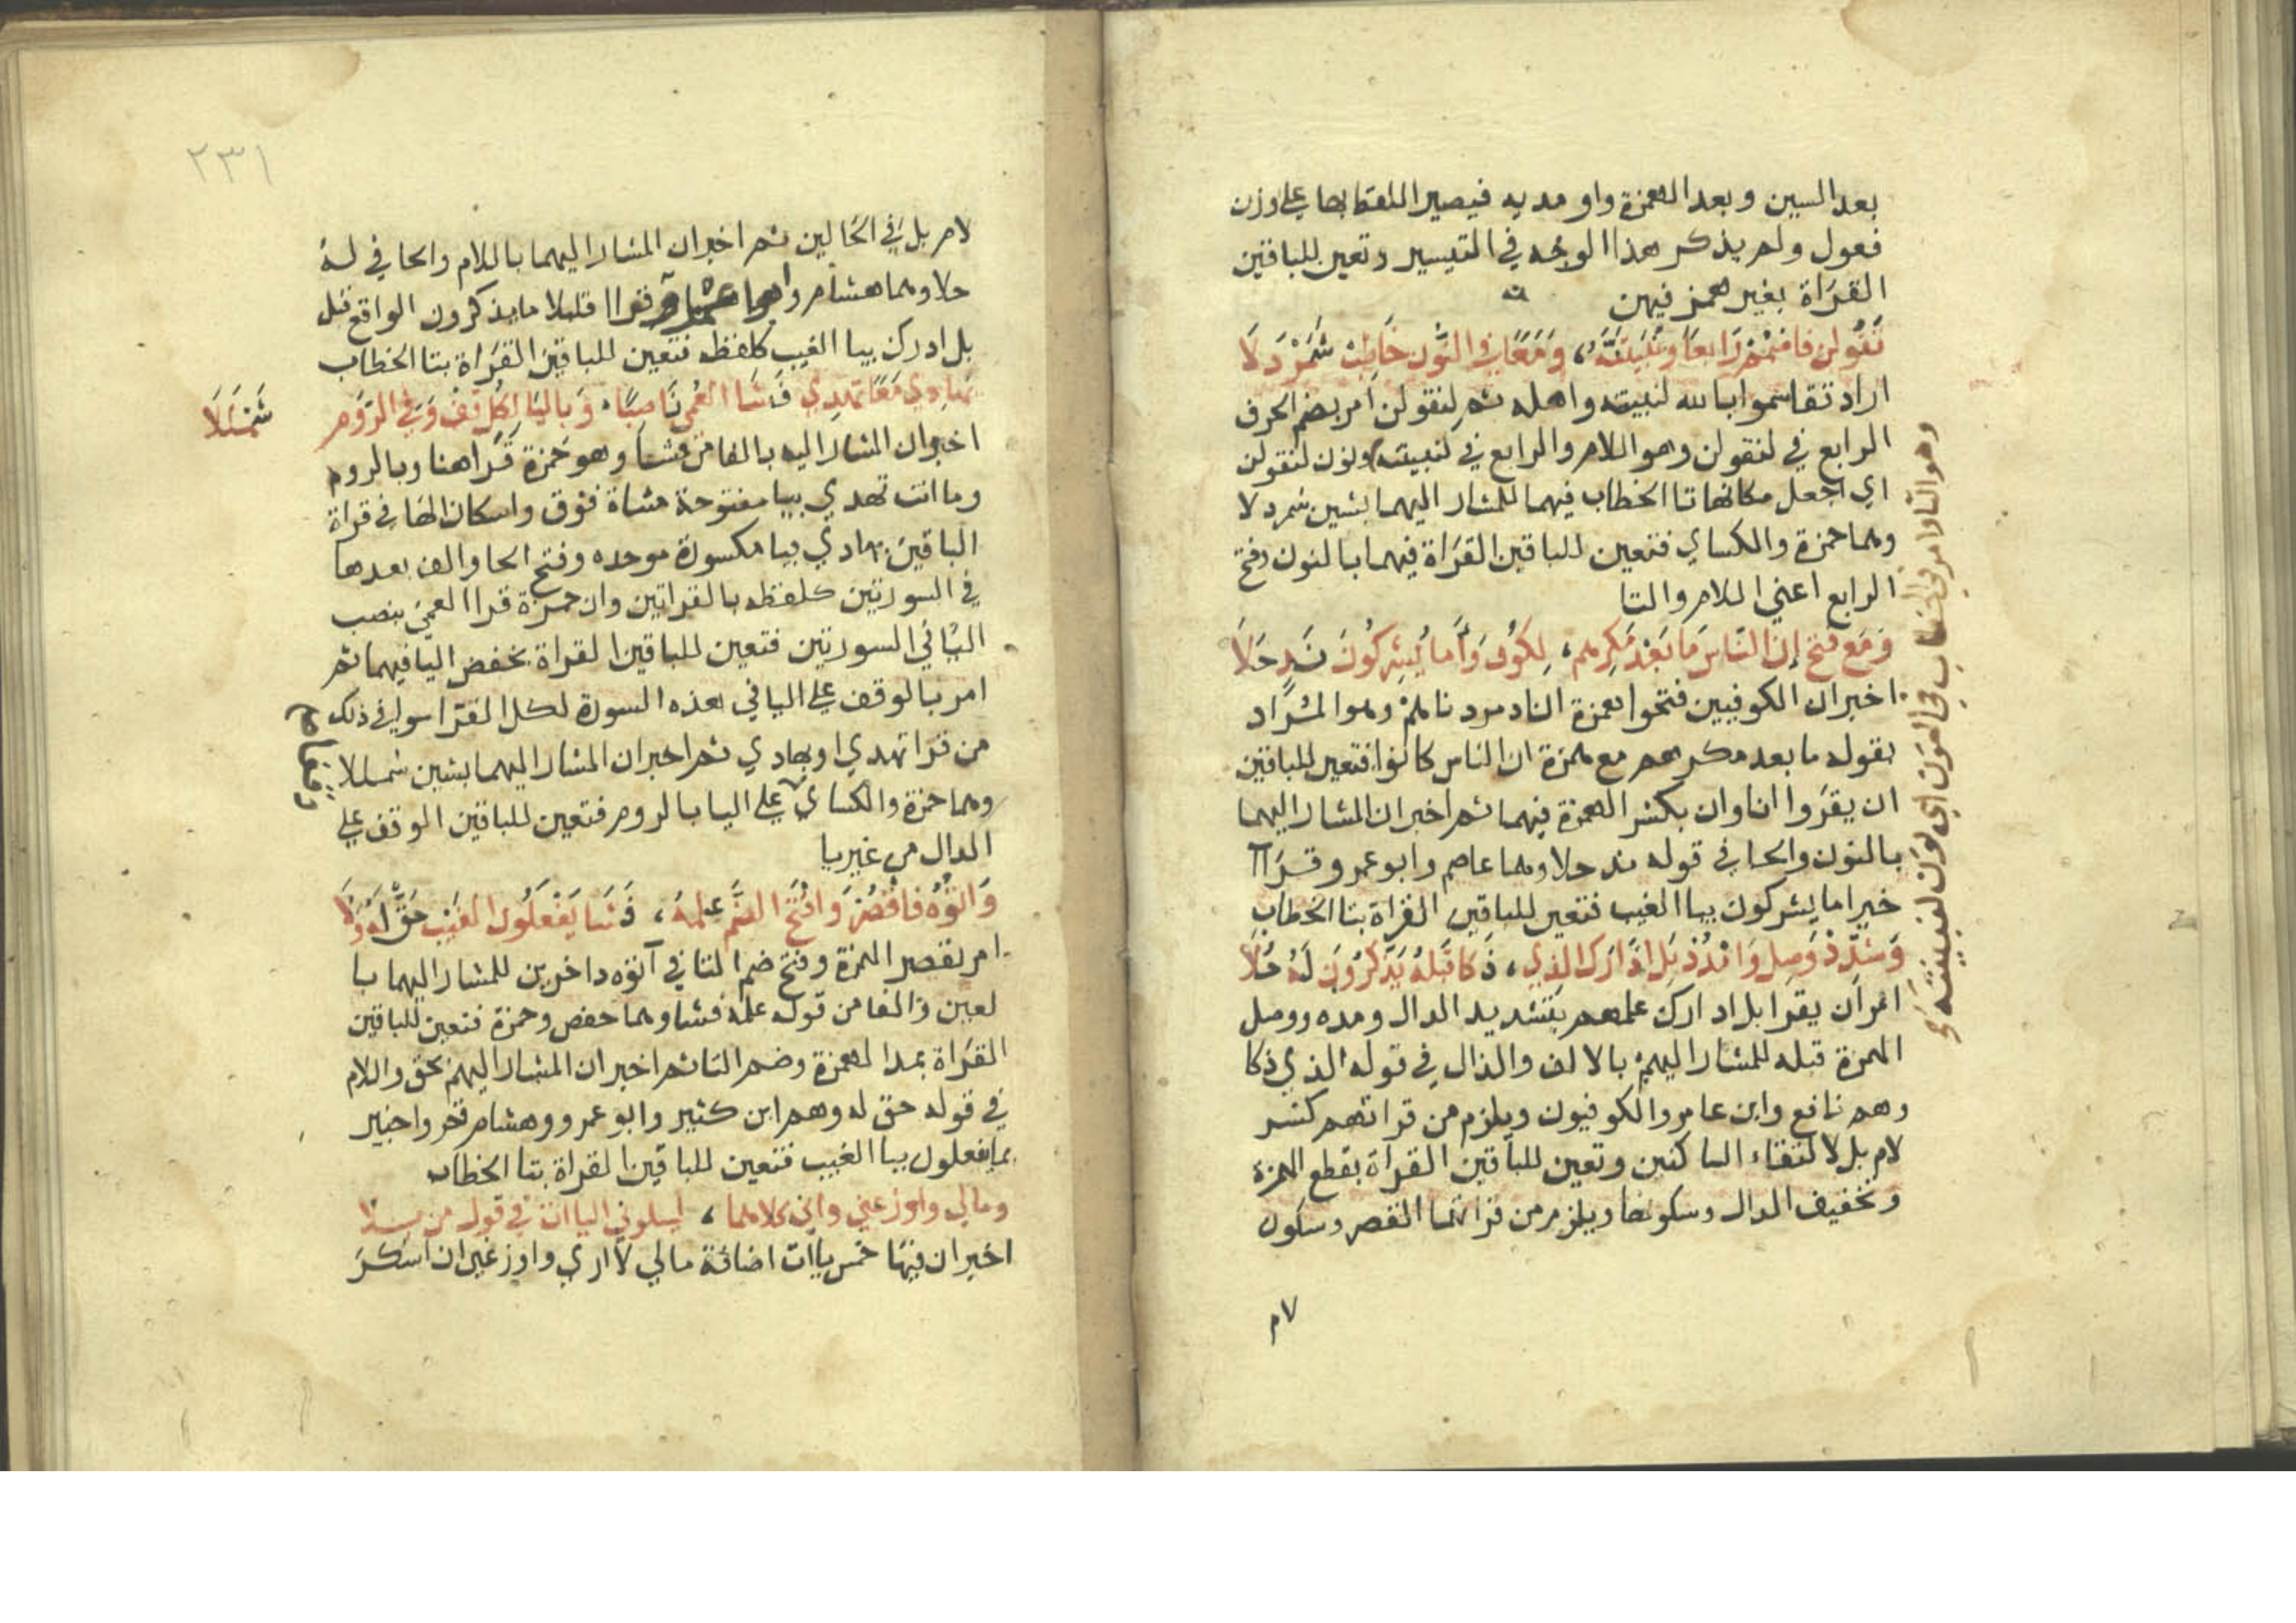 بعد السين وبعد الهمزة واو مديه فيصير اللفظ بها على وزن
فعول ولم يذكر هذا الوجه في التيسير وتعين للباقين
القرَاة بغير همز فيهن
نَقُولن فاضْمُمْ رَابعًا وَنُبَيِّتَنَّهُ، وَمَعًا في النُّون خَاطِبْ شَمَرْدَلَا
اراد تقاسموا بالله لنبيته واهله ثم لنقولن امر بضم الحرف
الرابع في لنقولن وهو اللام والرابع في لنبيتنه ونون لنقولن
اي اجعل مكانها تا الخطاب فيهما للمشار اليهما بشين شمردلا
وهما حمزة والكساي فتعين للباقين القرَاة فيهما بالنون وفتح
الرابع اعني اللام والتا
وَمَع فَتح إنَ النَّاسَ مَا بَعْدَ مَكْرِهم، لِكُوفٍ وَأَمَا يُشْرِكُونَ نَدٍ حَلَا
اخبر ان الكوفيين فتحوا همزة انا دمرناهمْ وهو المُرَاد
بقوله ما بعد مكرهم مع همزة ان الناس كانوا فتعين للباقين
ان يقرَوا انا وان بكسر الهمزة فيهما ثم اخبر ان المشار اليهما
بالنون والحا في قوله ند حلا وهما عاصم وابو عمرو قرَاآ
خير اما يشركون بيا الغيب فتعين للباقين القراة بتا الخطاب
وَشَدِّدْ وَصِل وَامْدُدْ بَلِ ادَّارَكَ الذِي، ذَكَا قَبْلهُ يَذَّكَّرُونَ لَهُ حُلَا
امر ان يقرا بل ادارك علمهم بتشديد الدال ومده ووصل
الهمزة قبله للمشار اليهم بالالف والذال في قوله الذي ذكا
وهم نافع وابن عامر والكوفيون ويلزم من قراتهم كسر
لام بل لالتقاء الساكنين وتعين للباقين القراة بقطع الهمزة
وتخفيف الدال وسكونها ويلزم من قراتهما القصر وسكون
لام
وهو التا
٢٣١
لام بل في الحَالين ثم اخبر ان المشار اليهما باللام والحا في له
حلا وهما هشام و قراا قليلا ما يذكرون الواقع قبل
بل ادرك بيا الغيب كلفظه فتعين للباقين القرَاة بتا الخطاب
بهَادِي مَعًا تَهْدِي فَشَا العُمْيِ نَاصِبًا، وَبِاليَا لِكُلٍ قفْ وَفي الرَّوم
شَمْلَلَا
اخبر ان المشار اليه بالفا من فشا وهو حمزة قرَا هنا وبالروم
وما انت تهدي بيا مفتوحة مثناة فوق واسكان الها في قراة
الباقين بهادي بيا مكسورة موحده وفتح الها والف بعدها
في السورتين كلفظه بالقراتين وان حمزة قرا العمي بنصب
اليا في السورتين فتعين للباقين القراة بخفض اليا فيهما ثم
امر بالوقف على اليا في هذه السورة لكل القرا سوا في ذلك
من قرا تهدي او بهادي ثم اخبر ان المشار اليهما بشين شمللا
وهما حمزة والكساي على اليا بالروم فتعين للباقين الوقف على
الدال من غير يا
وَآتُوهُ فَاقْصُرْ وَافْتَح الضَّم عِلمهُ، فَشَا يَفْعَلُونَ الغَيْب حَقٌّ لَهُ وَلَا
امر بقصر الهمزة وفتح ضم التا في آتوه داخرين للمشار اليهما با
لعين والفا من قوله علمه فشا وهما حفص وحمزة فتعين للباقين
القرَاة بمد الهمزة وضم التا ثم اخبر ان المشار اليهم بحق واللام
في قوله حق له وهم ابن كثير وابو عمرو وهشام قرَوا خبير
بما يفعلون بيا الغيب فتعين للباقين القراة بتا الخطاب
ومالي واوزعني واني كلاهما، ليبلوني اليآات في قول من بلا
اخبر ان فيها خمس يآات اضافة مالي لا اري واوزعني ان اشكرَ